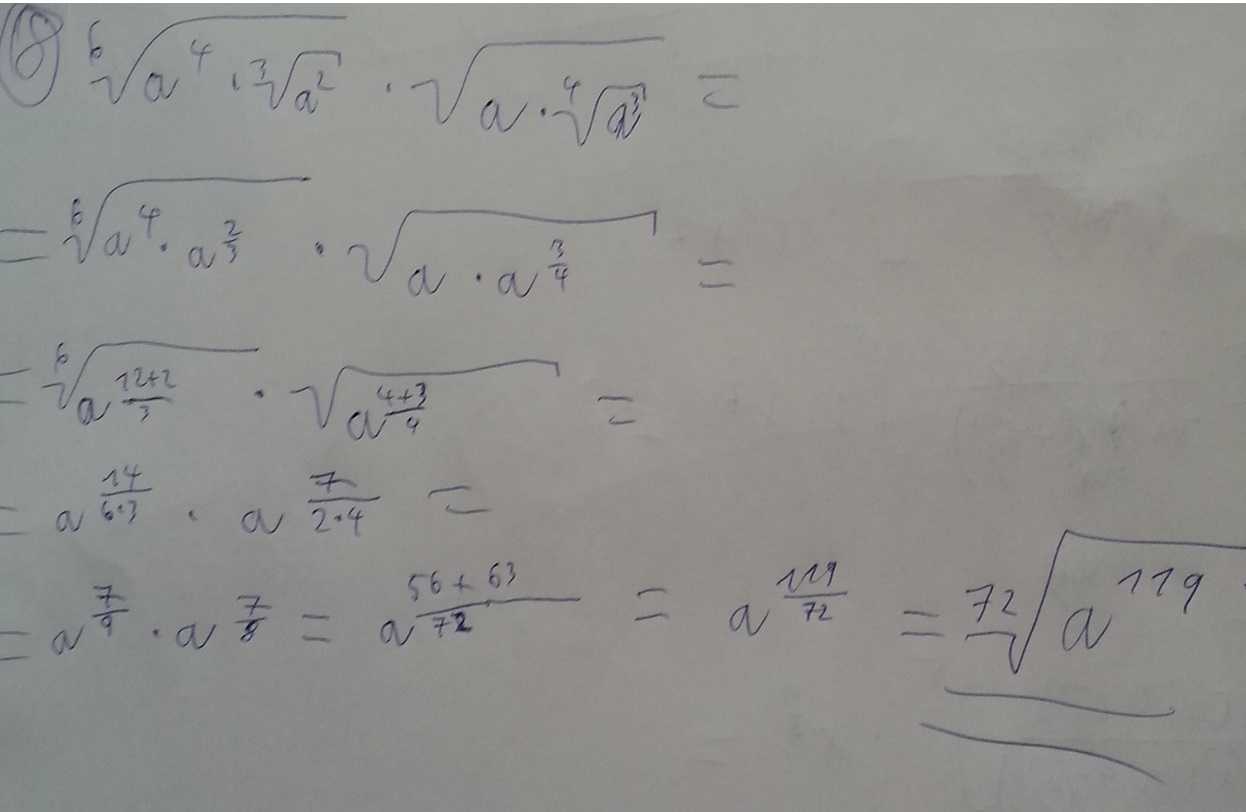 18) ⁶√(a⁴ · ³√(a²)) · √(a · ⁴√(a³)) =
= ⁶√(a⁴ · a^(2/3)) · √(a · a^(3/4)) =
= ⁶√(a^((12+2)/3)) · √(a^((4+3)/4)) =
= a^(14/(6·3)) · a^(7/(2·4)) =
= a^(7/9) · a^(7/8) = a^((56+63)/72) = a^(119/72) = ⁷²√(a¹¹⁹)